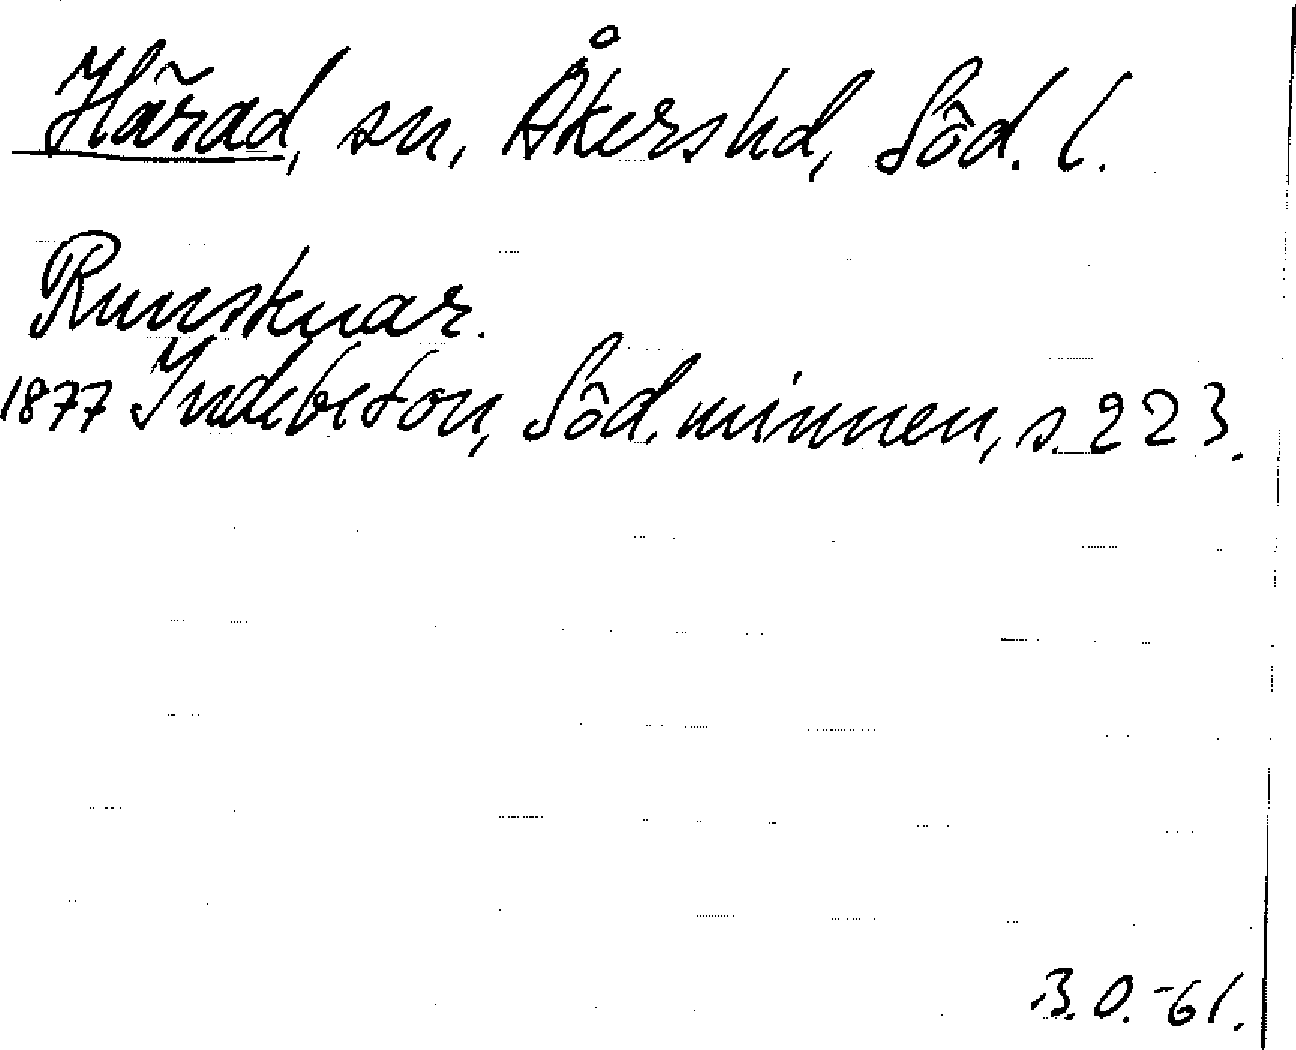 Härad, sn, Åkers hd, Söd. l.
Runsknar.
1877 Indebetou, Söd. minnen, s. 223.
B.O. -61.